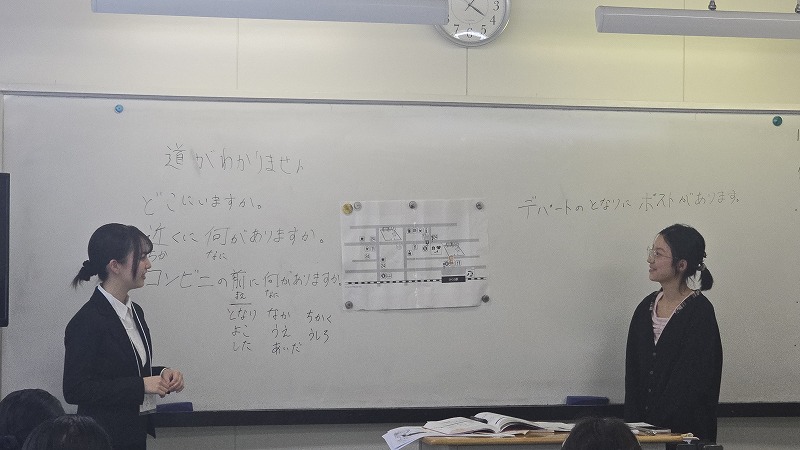 道がわかりません
どこにいますか。
近くに何がありますか。
ちか なに
コンビニの前に何がありますか。
まえ なに
となり なか ちかく
よこ うえ うしろ
した あいだ
デパートのとなりにポストがあります。